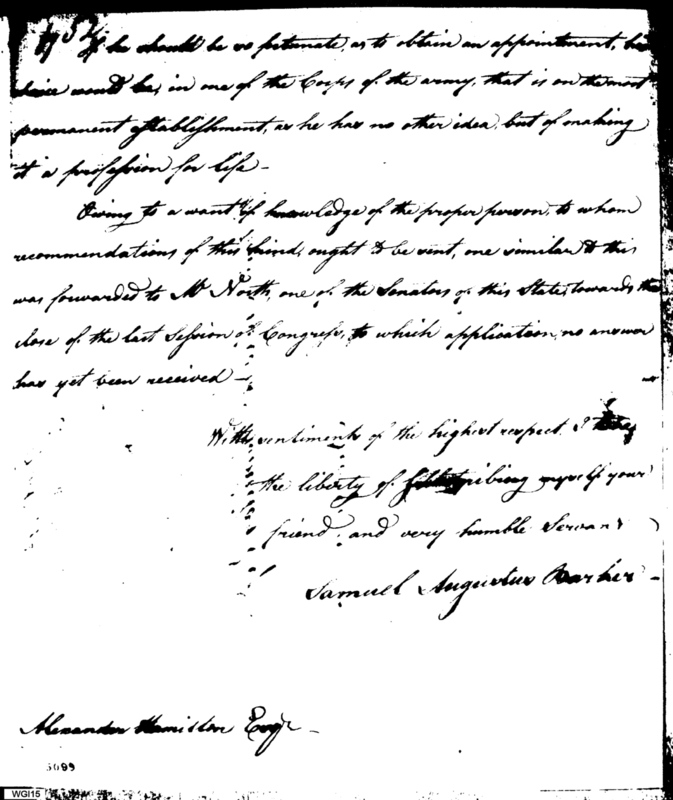 If he should be so fortunate, as to obtain an appointment, his
choice would be, in one of the Corps of the army, that is on the most
permanent establishment, as he has no other idea, but of making
it a profession for life –
Owing to a want of knowledge of the proper person, to whom
recommendations of this kind, ought to be sent, one similar to this
was forwarded to Mr North, one of the Senators of this State, towards the
close of the last Session of Congress, to which application, no answer
has yet been received –
With sentiments of the highest respect I take
the liberty of subscribing myself your
friend, and very humble Servant
Samuel Augustus Barker –
Alexander Hamilton Esqr –
5099
WGI15